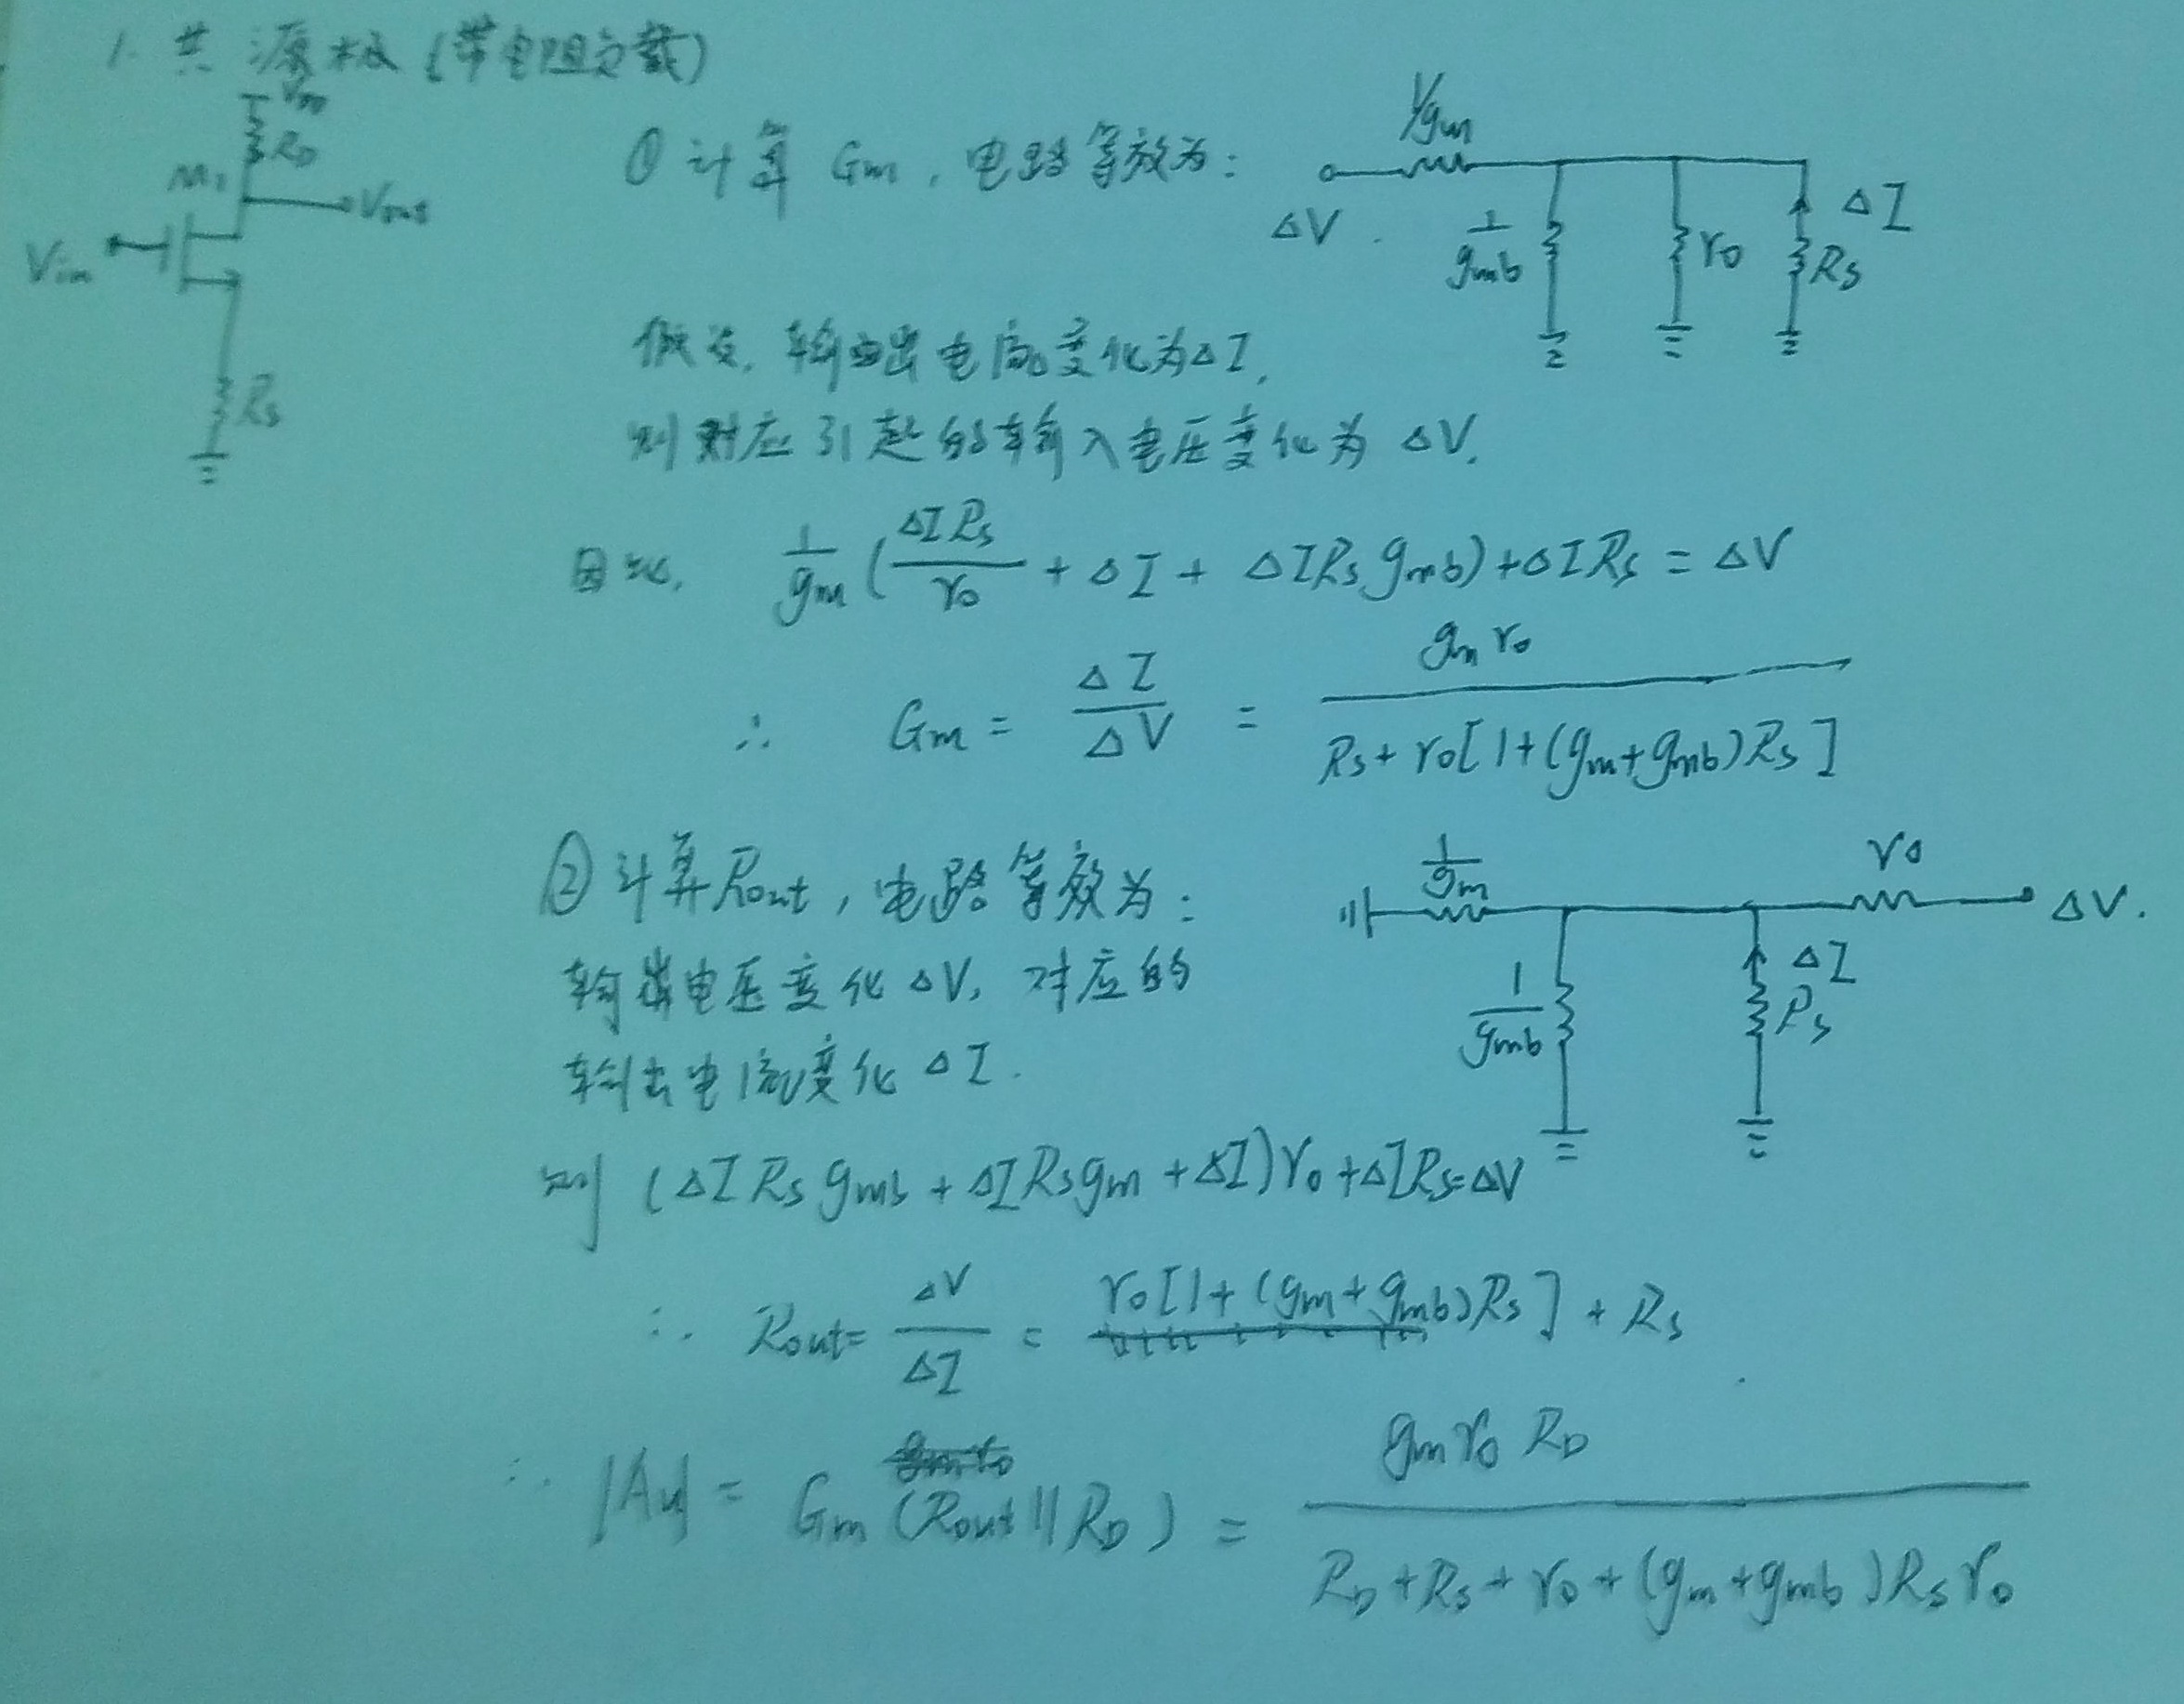 1. 共源极 (带电阻负载)
VDD
RD
M1
Vout
Vin
RS
① 计算 Gm, 电路等效为:
1/gm
ΔV
1/gmb
ro
ΔI
RS
假设, 输出电流变化为ΔI,
则对应引起的输入电压变化为 ΔV.
因此, 1/gm (ΔIRS/ro + ΔI + ΔIRS gmb) + ΔIRS = ΔV
∴ Gm = ΔI/ΔV = gm ro / RS + ro[1+(gm+gmb)RS]
② 计算Rout, 电路等效为:
1/gm
ro
ΔV.
1/gmb
ΔI
RS
输出电压变化 ΔV, 对应的
输出电流变化 ΔI.
则 (ΔI RS gmb + ΔI RS gm + ΔI) ro + ΔIRS = ΔV
∴ Rout = ΔV/ΔI = ro[1+(gm+gmb)RS] + RS
∴ |Av| = Gm (Rout || RD) = gm ro RD / RD + RS + ro + (gm+gmb)RS ro